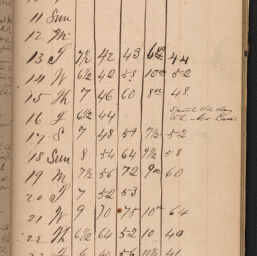 11 Sun
12 M
13 T 7½ 42 43 44
14 W 6½ 42 58 10 52
15 Th 7 46 60 8 48
16 F 6½ 44
17 S 7 48 59 7½ 52
18 Sun 8 54 64 9½ 58
19 M 7½ 56 72 9 60
20 T 7 52 53
21 W 9 70 75 10 64
22 Th 6½ 64 52 10 40